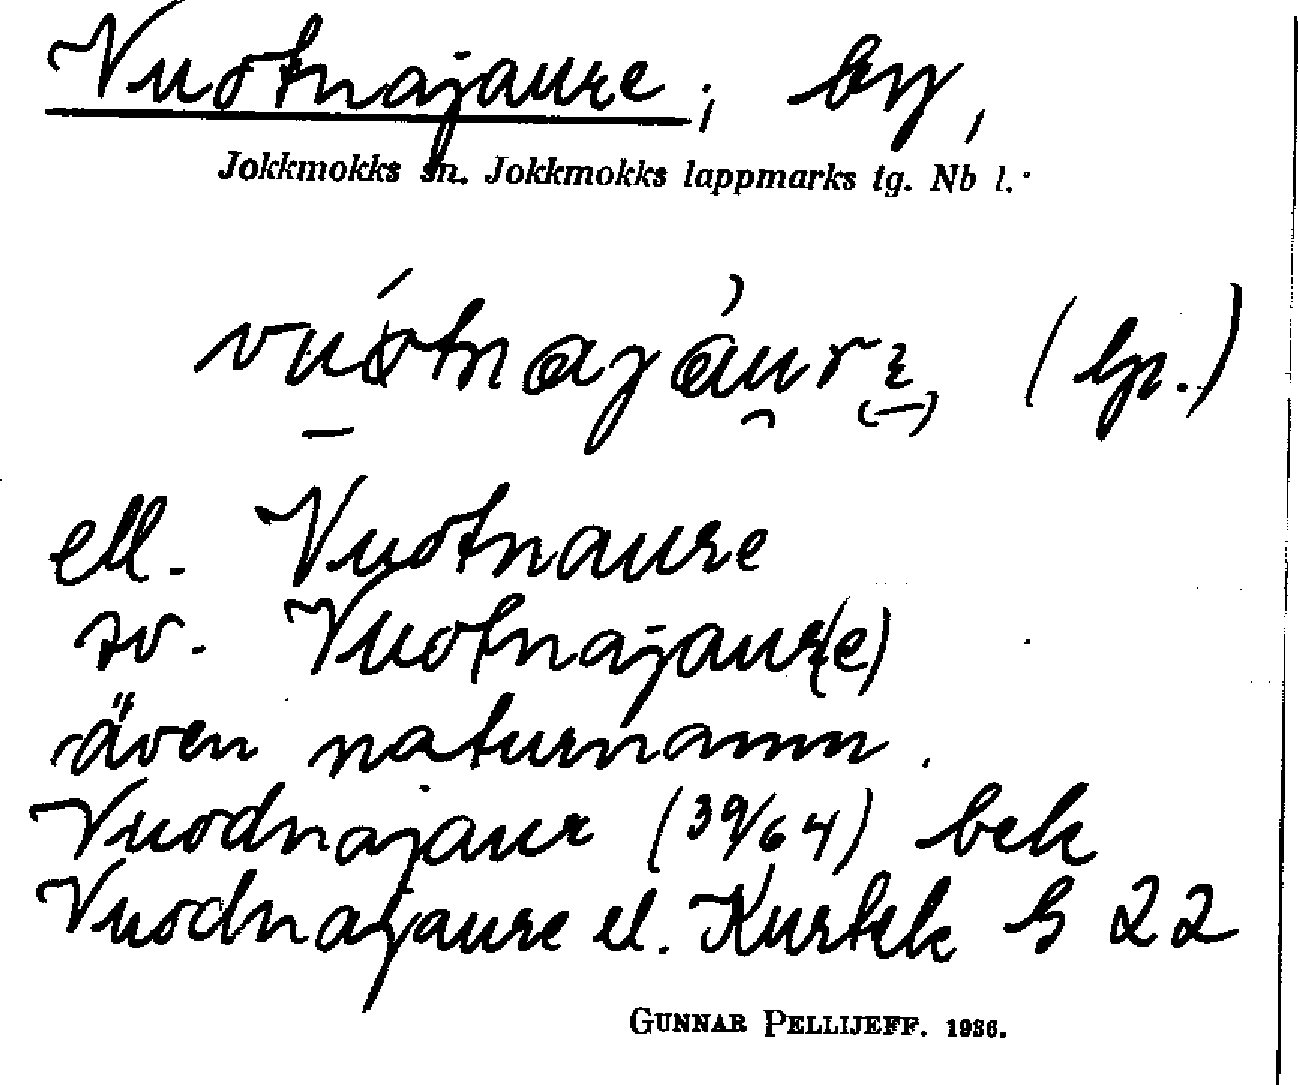 Vuotnajaure; by,
Jokkmokks sn. Jokkmokks lappmarks tg. Nb l.
vuótnajàure (lp.)
ell. Vuotnaure
sv. Vuotnajaur(e)
även naturnamn.
Vuodnajaur (39/64) bek
Vuodnajaure el. Kurtek G 22
GUNNAR PELLIJEFF. 1936.